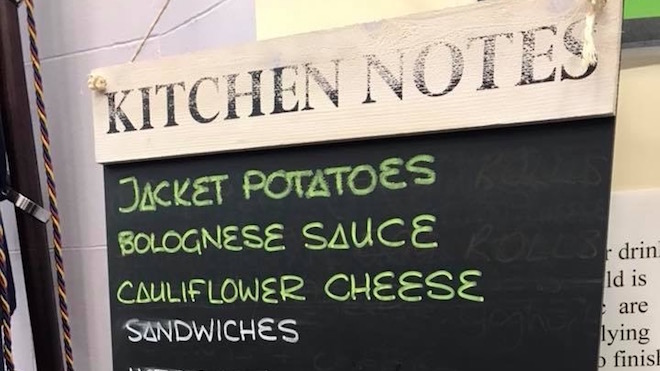 KITCHEN NOTES
JACKET POTATOES
BOLOGNESE SAUCE
CAULIFLOWER CHEESE
SANDWICHES
ld is
are
lying
finish